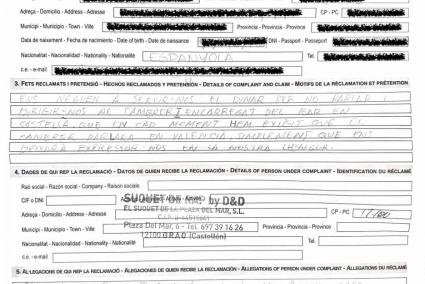 Adreça - Domicilio - Address - Adresse CP - PC
Municipi - Municipio - Town - Ville Provincia - Province - Province
Data de naixement - Fecha de nacimiento - Date of birth - Date de naissance DNI - Passport - Passeport
Nacionalitat - Nacionalidad - Nationality - Nationalité ESPANYOLA Tel.
c.e. - e-mail
3. FETS RECLAMATS I PRETENSIÓ - HECHOS RECLAMADOS Y PRETENSIÓN - DETAILS OF COMPLAINT AND CLAIM - MOTIFS DE LA RÉCLAMATION ET PRÉTENTION
ENS NEGUEN A SERVIR-NOS EL DINAR PER NO PARLAR
DIRIGIR-NOS AL CAMBRER I ENCARREGAT DEL BAR EN
CASTELLÀ, QUE EN CAP MOMENT HEM EXIGIT QUE EL
CAMBRER PARLARA EN VALENCIÀ, SIMPLEMENT QUE ENS
DEIXARA EXPRESSAR-NOS EN LA NOSTRA LLENGUA.
4. DADES DE QUI REP LA RECLAMACIÓ - DATOS DE QUIEN RECIBE LA RECLAMACIÓN - DETAILS OF PERSON UNDER COMPLAINT - IDENTIFICATION DU RÉCLAMÉ
Raó social - Razón social - Company - Raison sociale
CIF o DNI SUQUET DE NAJ by D&D
EL SUQUET DE LA PLAZA DEL MAR, S.L.
Adreça - Domicilio - Address - Adresse CP - PC 12100
Municipi - Municipio - Town - Ville Plaza Del Mar, 6 - Tel. 697 39 16 26 Provincia - Province - Province
12100 GRAO (Castellón)
Nacionalitat - Nacionalidad - Nationality - Nationalité Tel.
c.e. - e-mail
5. AL·LEGACIONS DE QUI REP LA RECLAMACIÓ - ALEGACIONES DE QUIEN RECIBE LA RECLAMACIÓN - ALLEGATIONS OF PERSON UNDER COMPLAINT - ALLEGATIONS DU RÉCLAMÉ